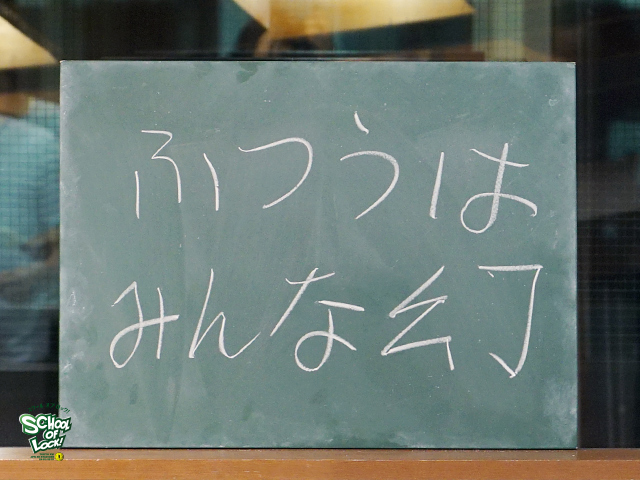 ふつうは
みんな幻
SCHOOL
OF
LOCK!